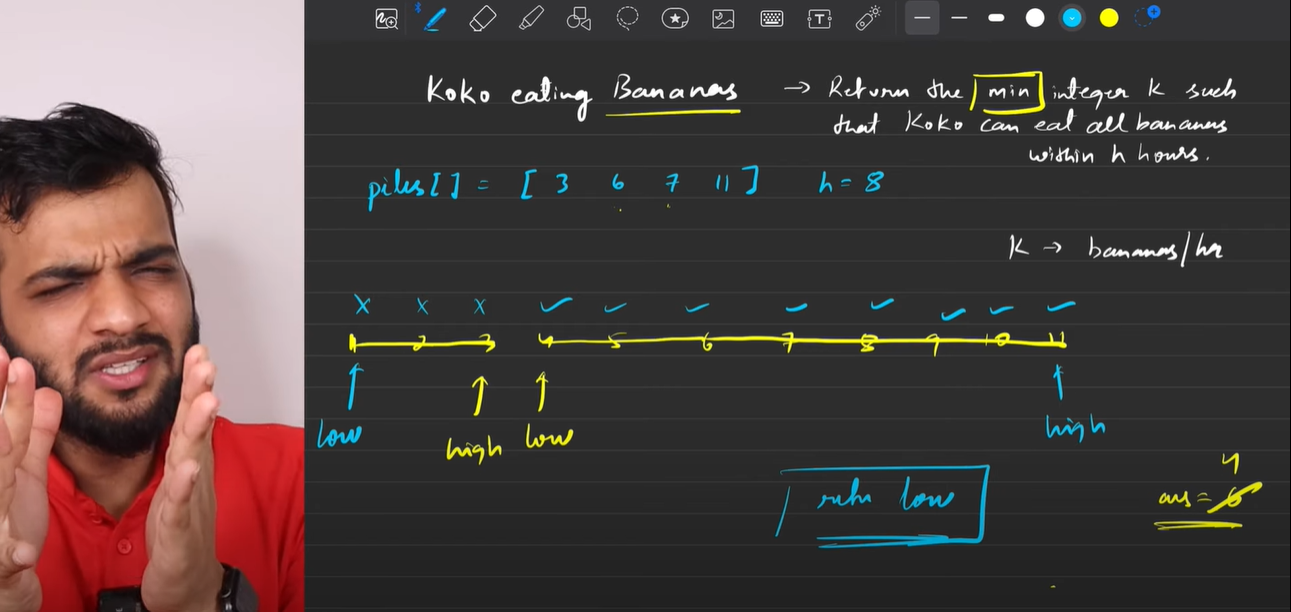 Koko eating Bananas → Return the min integer K such
that Koko can eat all bananas
within h hours.
piles[] = [ 3 6 7 11 ] h = 8
K → bananas/hr
x x x ✓ ✓ ✓ ✓ ✓ ✓ ✓ ✓
1 2 3 4 5 6 7 8 9 10 11
low high low high
4
return low ans = 6